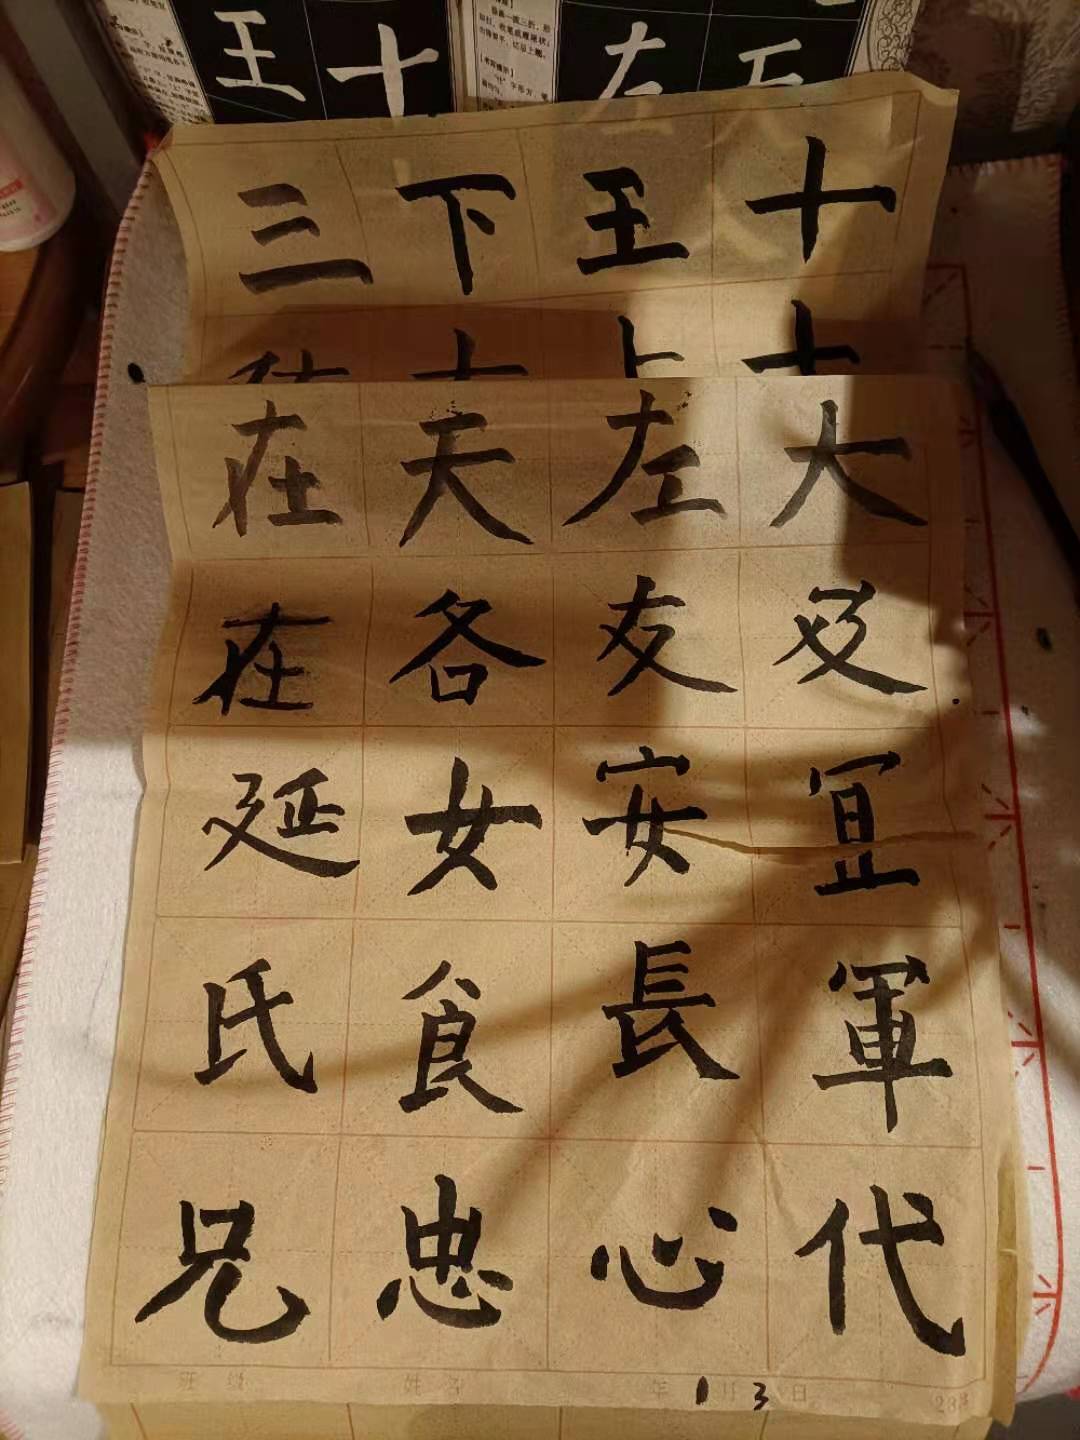 王十左五
三下王十
在天左大
在各友及
延女安冝
氏食長軍
兄忠心代
班级 姓名 年1月3日